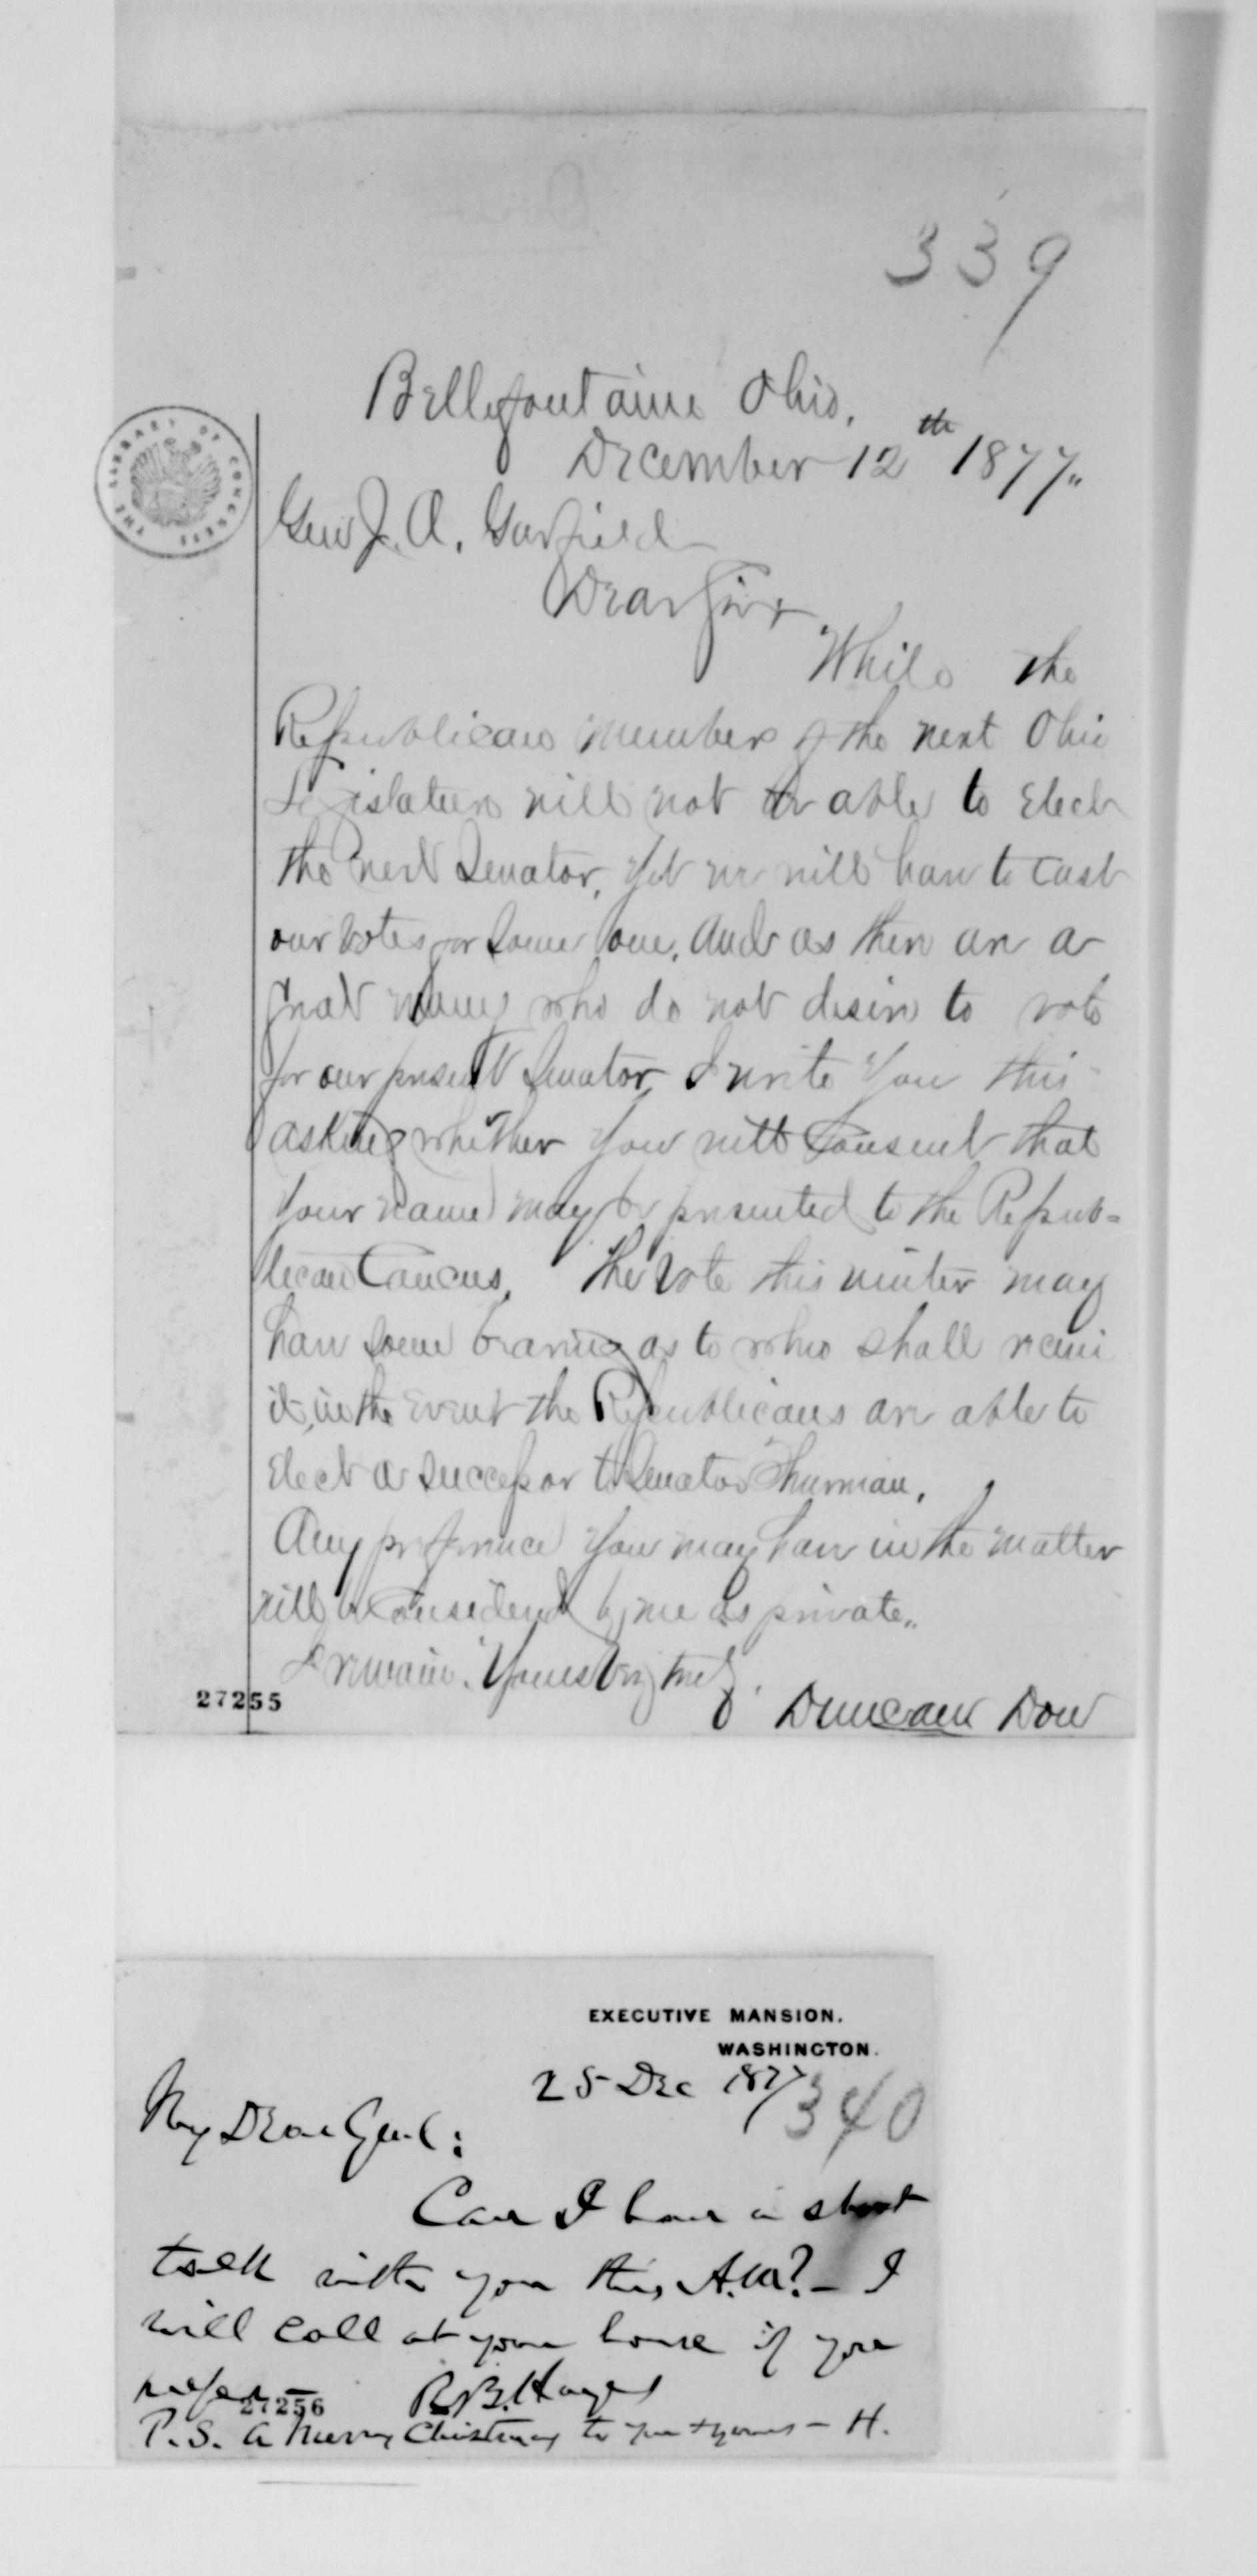 339
Bellefontaine Ohio,
December 12th 1877.
Gen J. A. Garfield
Dear Sir,
While the
Republican members of the next Ohio
Legislature will not be able to elect
the next Senator, yet we will have to cast
our votes for some one. And as there are a
great many who do not desire to vote
for our present Senator, I write you this
asking whether you will consent that
your name may be presented to the Repub-
lican Caucus. The vote this winter may
have some bearing as to who shall receive
it, in the event the Republicans are able to
elect a successor to Senator Thurman.
Any preference you may have in the matter
will be considered by me as private.
I remain. Yours very truly.
Duncan Dow
27255
THE LIBRARY OF CONGRESS
EXECUTIVE MANSION.
WASHINGTON.
25 Dec 1877
340
My Dear Genl:
Can I have a short
talk with you this A.M? - I
will call at your house if you
prefer -
R. B. Hayes
27256
P. S. A Merry Christmas to you & yours - H.